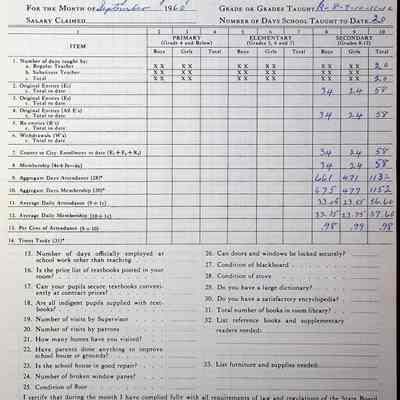 FOR THE MONTH OF September 196
GRADE OR GRADES TAUGHT
SALARY CLAIMED
NUMBER OF DAYS SCHOOL TAUGHT TO DATE 20
1 2 3 4 5 6 7 8 9 10
ITEM
PRIMARY (Grade 4 and Below)
ELEMENTARY (Grades 5, 6 and 7)
SECONDARY (Grades 8-12)
Boys Girls Total Boys Girls Total Boys Girls Total
1. Number of days taught by:
a. Regular Teacher XX XX XX XX XX XX 20
b. Substitute Teacher XX XX XX XX XX XX
c. Total XX XX XX XX XX XX 20
2. Original Entries (E1)
c. Total to date 34 24 58
3. Original Entries (E2)
c. Total to date
4. Original Entries (All E's)
c. Total to date 34 24 58
5. Re-entries (R's)
c. Total to date
6. Withdrawals (W's)
c. Total to date
7. County or City Enrollment to date 34 24 58
8. Membership 34 24 58
9. Aggregate Days Attendance (28)* 661 471 1132
10. Aggregate Days Membership (30)* 675 477 1152
11. Average Daily Attendance (9 ÷ 1c) 56.60
12. Average Daily Membership (10 ÷ 1c) 57.60
13. Per Cent of Attendance (9 ÷ 10) .98 .99 .98
14. Times Tardy (31)*
15. Number of days officially employed at school work other than teaching
16. Is the price list of textbooks posted in your room?
17. Can your pupils secure textbooks conveniently at contract prices?
18. Are all indigent pupils supplied with textbooks?
19. Number of visits by Supervisor
20. Number of visits by patrons
21. How many homes have you visited?
22. Have parents done anything to improve school house or grounds?
23. Is the school house in good repair?
24. Number of broken window panes?
25. Condition of floor
26. Can doors and windows be locked securely?
27. Condition of blackboard
28. Condition of stove
29. Do you have a large dictionary?
30. Do you have a satisfactory encyclopedia?
31. Total number of books in room library?
32. List reference books and supplementary readers needed:
33. List furniture and supplies needed:
I certify that during the month I have complied fully with all requirements of law and regulations of the State Board